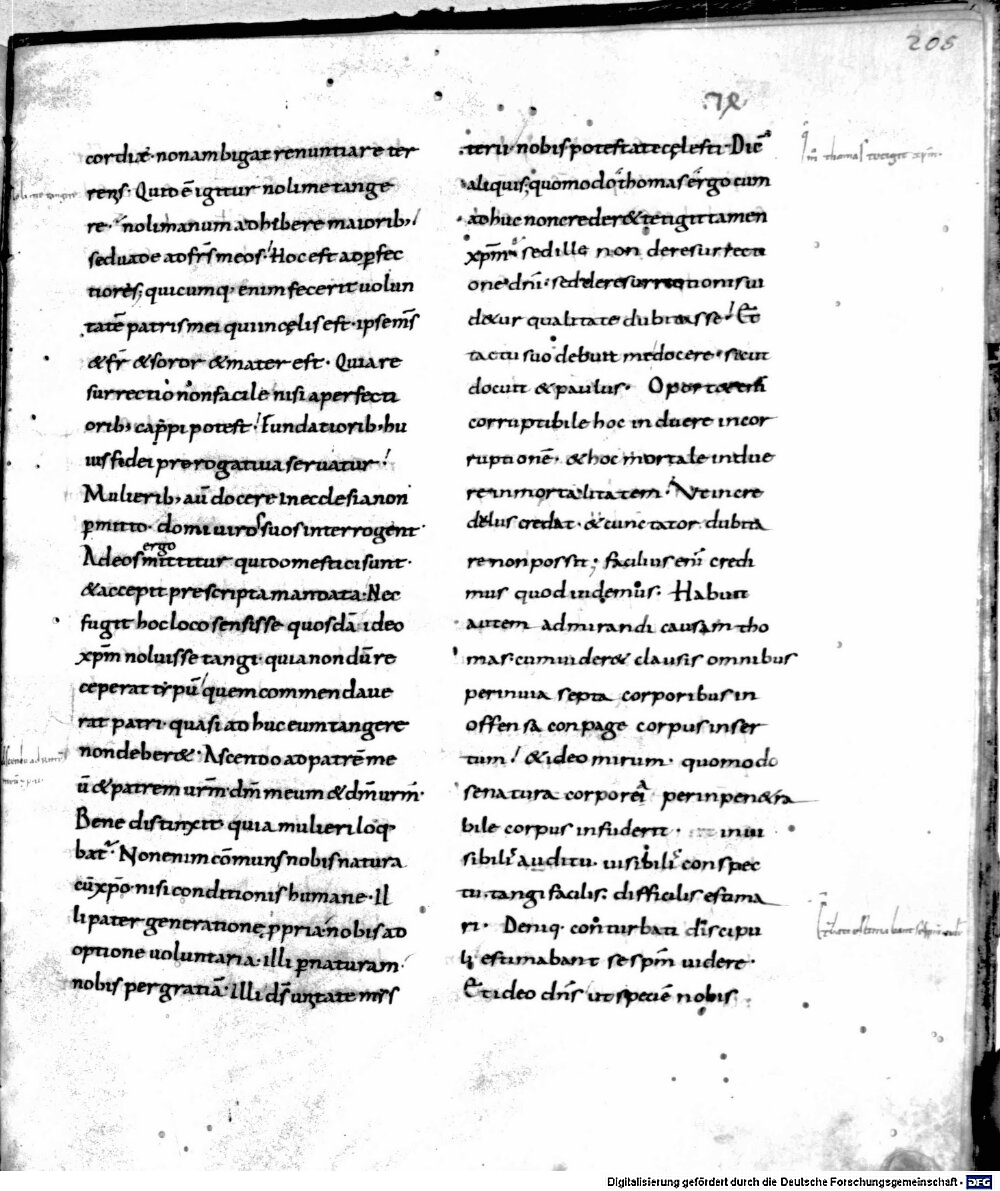 205
cordiæ· non ambigat renuntiare ter
renis· Quid ē igitur noli me tange
re· noli manum adhibere maiorib;
sed uade ad fr̄s meos· Hoc est ad ꝑfec
tiores; quicumq; enim fecerit uolun
tatē patris mei qui in cęlis est· ipse m̄s
& fr̄ & soror & mater est· Quia re
surrectio non facile nisi a perfecti
orib; capi potest· Fundatiorib; hu
ius fidei prerogatiua seruatur·
Mulierib; aū docere in ecclesia non
ꝑmitto· domi uiros suos interrogent·
Ad eos ergo mittitur qui domestici sunt·
& accepit prescripta mandata· Nec
fugit hoc loco sensisse quosdā ideo
xp̄m noluisse tangi· quia non dū re
ceperat sp̄m quem commendaue
rat patri· quasi adhuc eum tangere
non deber&· Ascendo ad patrē me
ū & patrem ur̄m· dm̄ meum & dm̄ ur̄m·
Bene distinxit· quia mulieri loq̄
bat᷑· Non enim cōmunis nobis natura
cū xp̄o· nisi conditionis humane· Il
li pater generatione ꝓpria· nobis ad
optione uoluntaria· illi ꝑ naturam·
nobis per gratiā· Illi ds̄ unitate mis
terii· nobis potestate cęlesti· Dic&
aliquis; quomodo thomas ergo cum
adhuc non creder& tetigit tamen
xp̄m· sed ille non de resurrecti
one dn̄i· sed de resurrectionis ui
d&ur qualitate dubitasse· Et
tactu suo debuit me docere· sicut
docuit & paulus· Oport& eni
corruptibile hoc induere incor
ruptionē· & hoc mortale indue
re inmortalitatem· Ut incre
dulus credat· & cunctator dubita
re non possit; facilius eni credi
mus quod uidemus· Habuit
autem admirandi causam tho
mas· cum uider& clausis omnibus
per inuia septa corporibus in
offensa conpage corpus inser
tum· & ideo mirum· quomodo
se natura corporea per inpen&ra
bile corpus infuderit· inui
sibili auditu· uisibili conspec
tu· tangi facilis· difficilis estima
ri· Deniq; conturbati discipu
li estimabant se sp̄m uidere·
Et ideo dn̄s ut speciē nobis